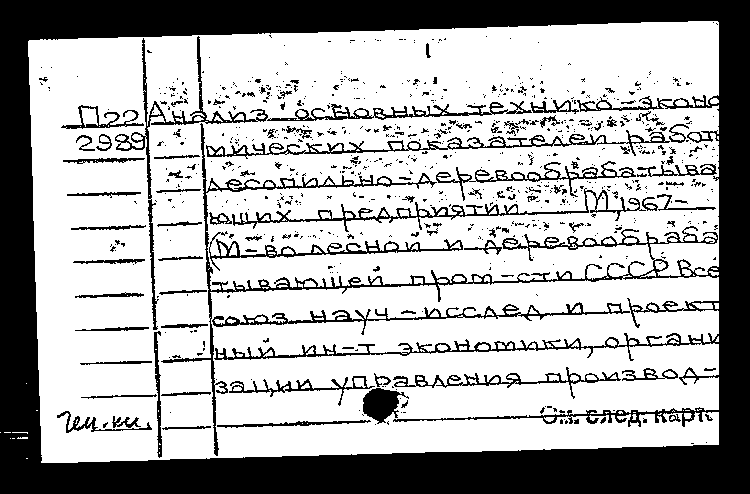 П22 Анализ основных технико-эконо
2989 мических показателей работ
лесопильно-деревообрабатыва
ющих предприятий М, 1967-
(М-во лесной и деревообраба
тывающей пром-сти СССР Все
союз науч-исслед и проект
ный ин-т экономики, органи
зации управления производ-
Ом. след. карт.